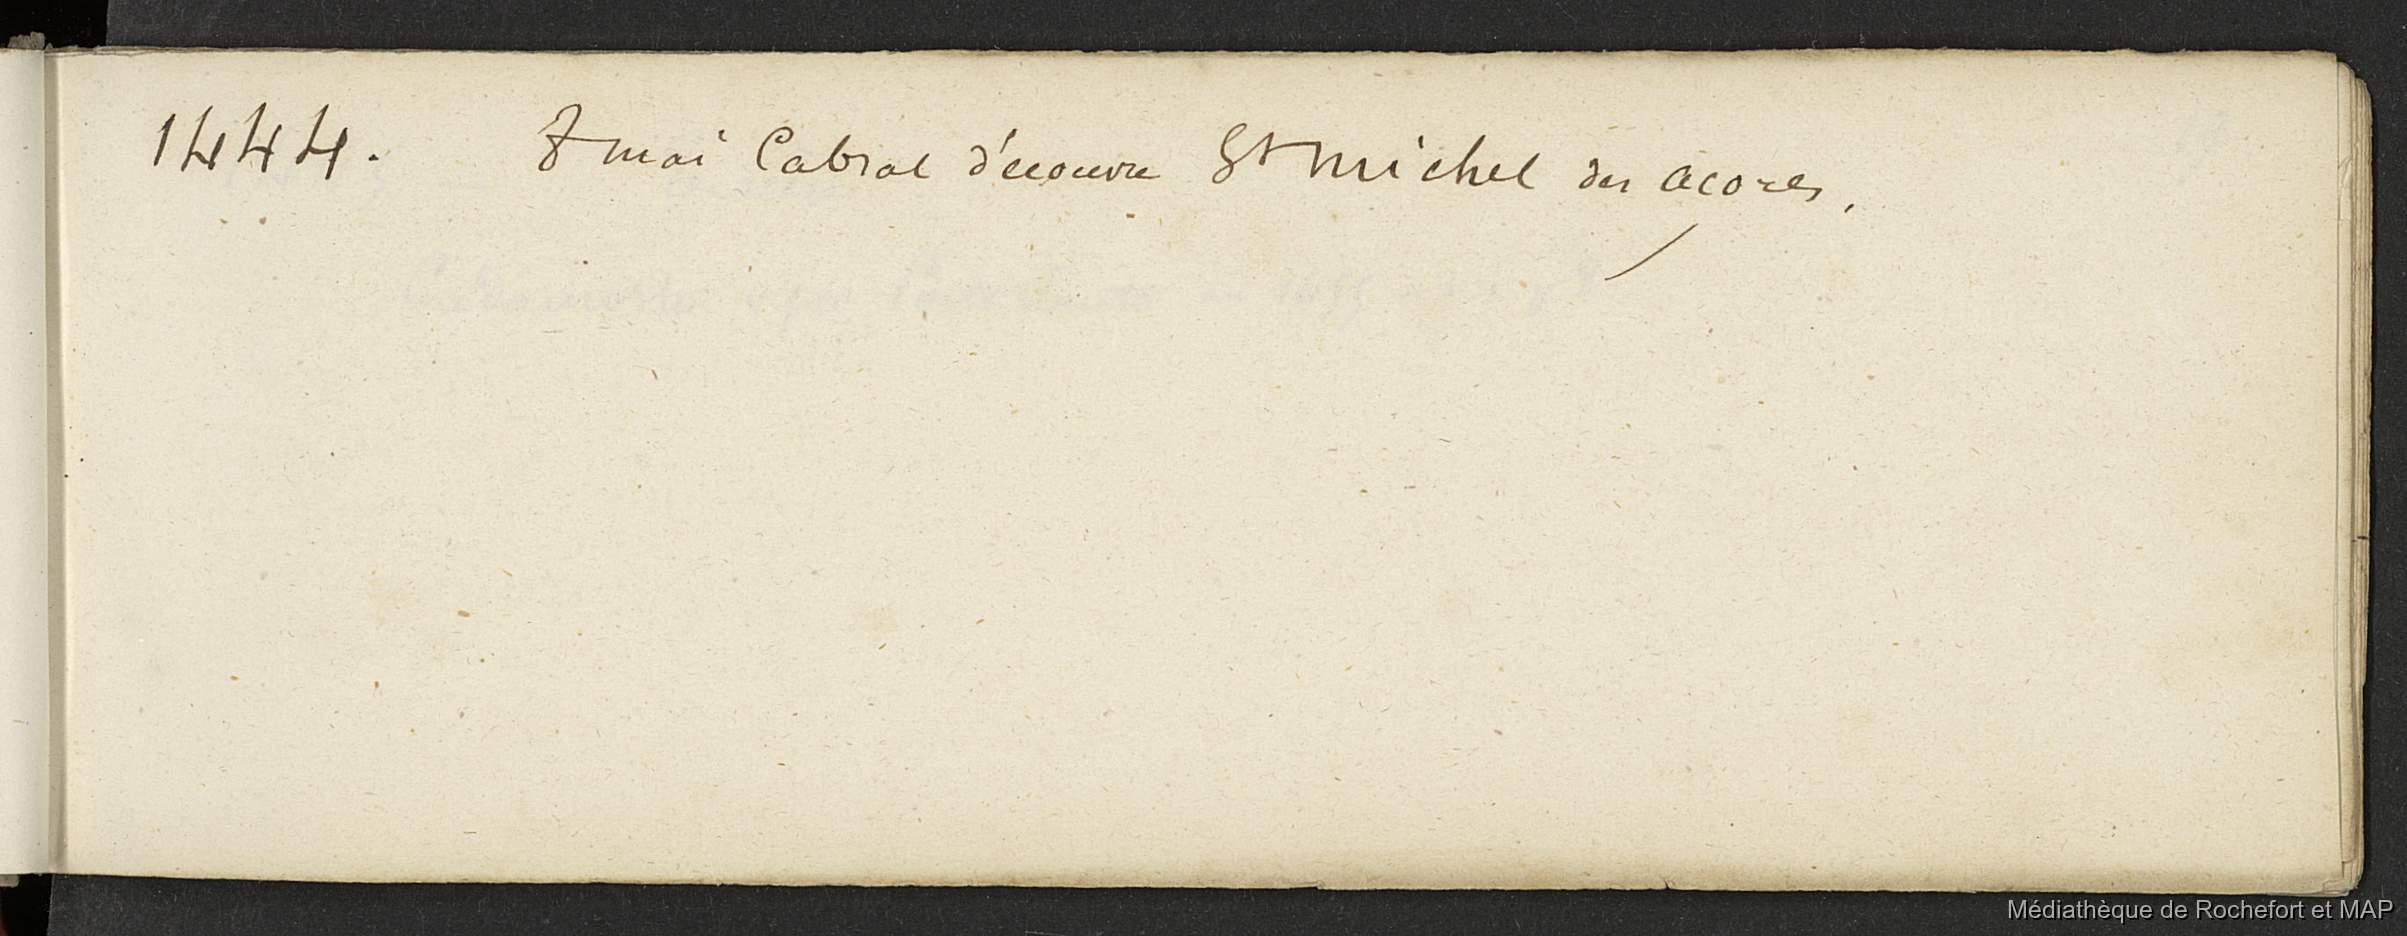 1444. 8 mai Cabral découvre St Michel des açores,
Médiathèque de Rochefort et MAP